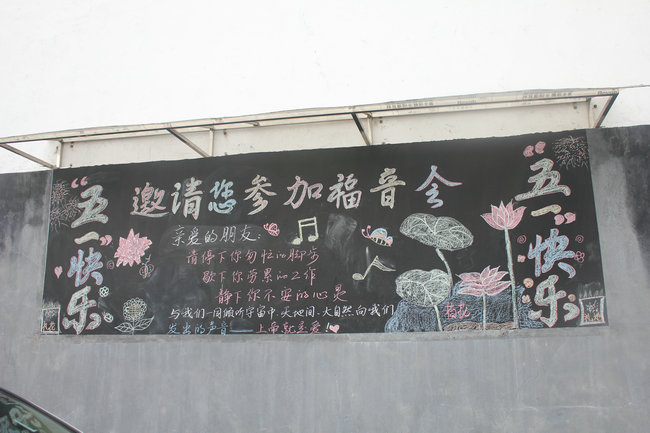 “五一”快乐
邀请您参加福音会
亲爱的朋友:
请停下你匆忙的脚步
歇下你劳累的工作
静下你不安的心灵
与我们一同倾听宇宙中、天地间、大自然向我们
发出的声音——上帝就是爱!
荷花
“五一”快乐